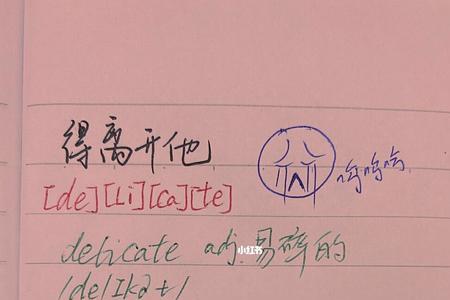 得离开他
呜呜呜
[de][Li][ca][te]
小红书
delicate adj.易碎的
/delIkət/